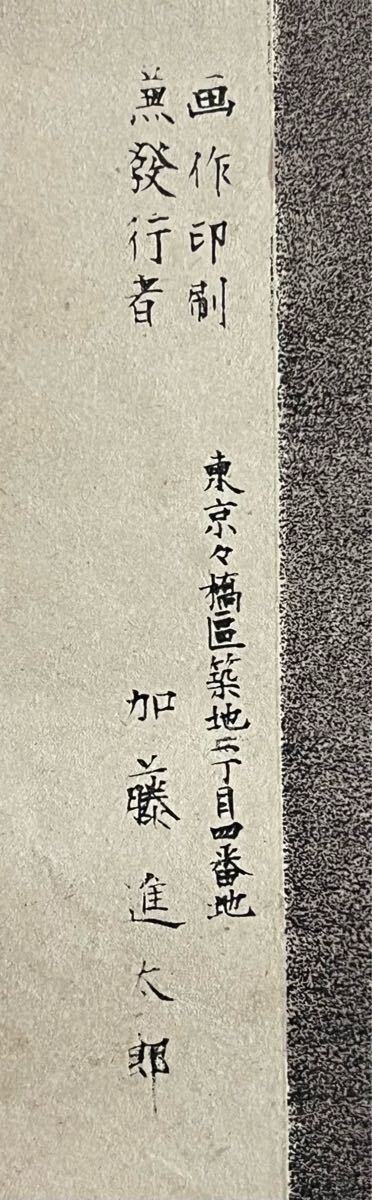 画作印刷
兼發行者
東京々橋區築地二丁目四番地
加藤進太郎